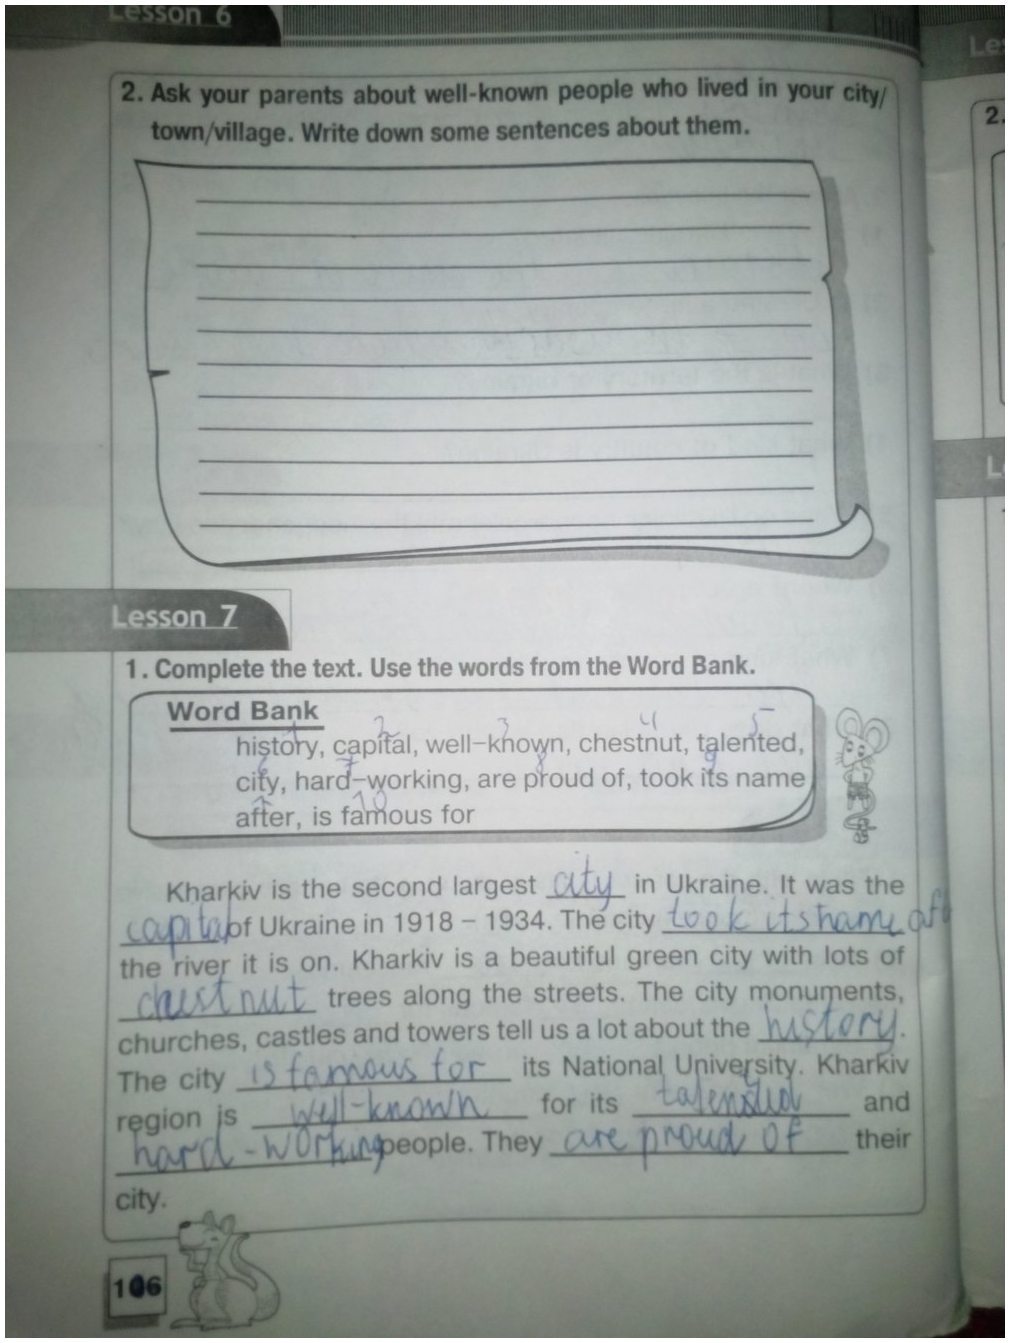 Lesson 6
Le
2. Ask your parents about well-known people who lived in your city/
town/village. Write down some sentences about them.
2.
L
Lesson 7
1. Complete the text. Use the words from the Word Bank.
Word Bank
1 2 3 4 5
history, capital, well-known, chestnut, talented,
6 7 8 9
city, hard-working, are proud of, took its name
10
after, is famous for
Kharkiv is the second largest city in Ukraine. It was the
capital of Ukraine in 1918 – 1934. The city took its name aft
the river it is on. Kharkiv is a beautiful green city with lots of
chestnut trees along the streets. The city monuments,
churches, castles and towers tell us a lot about the history.
The city is famous for its National University. Kharkiv
region is well-known for its talented and
hard-working people. They are proud of their
city.
106